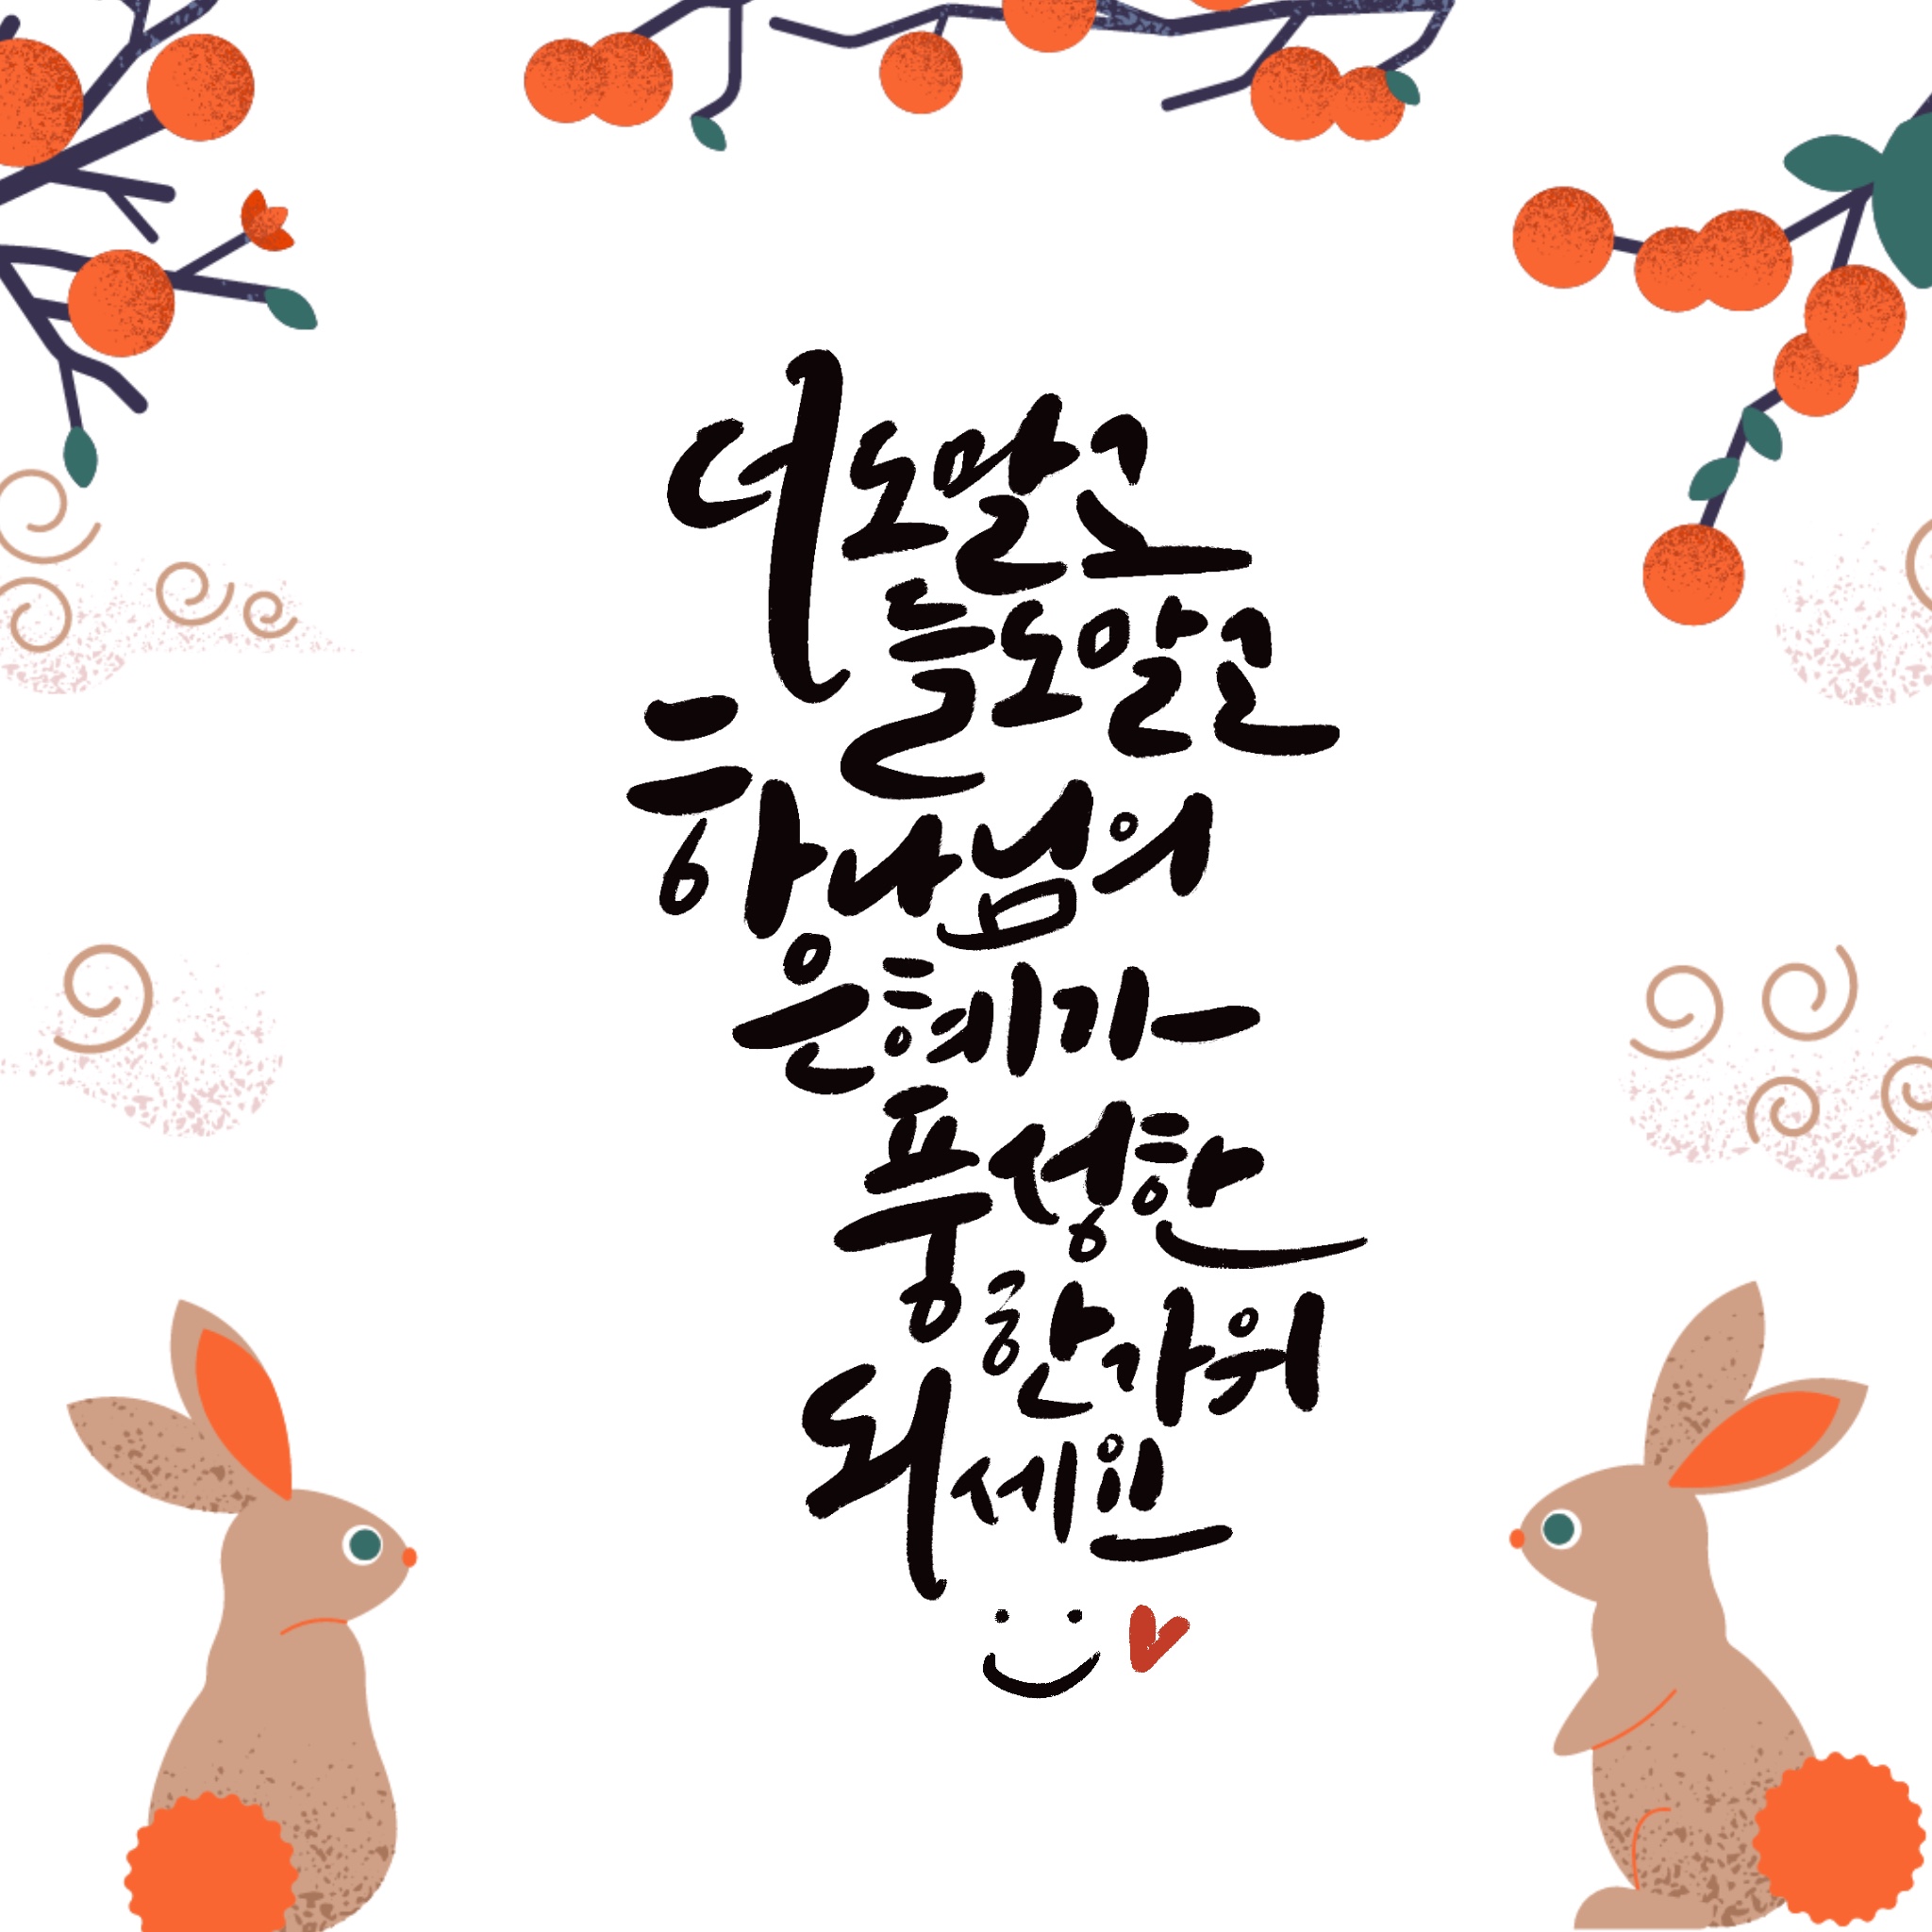 더도말고
들도말고
하나님의
은혜가
풍성한
한가위
되세요